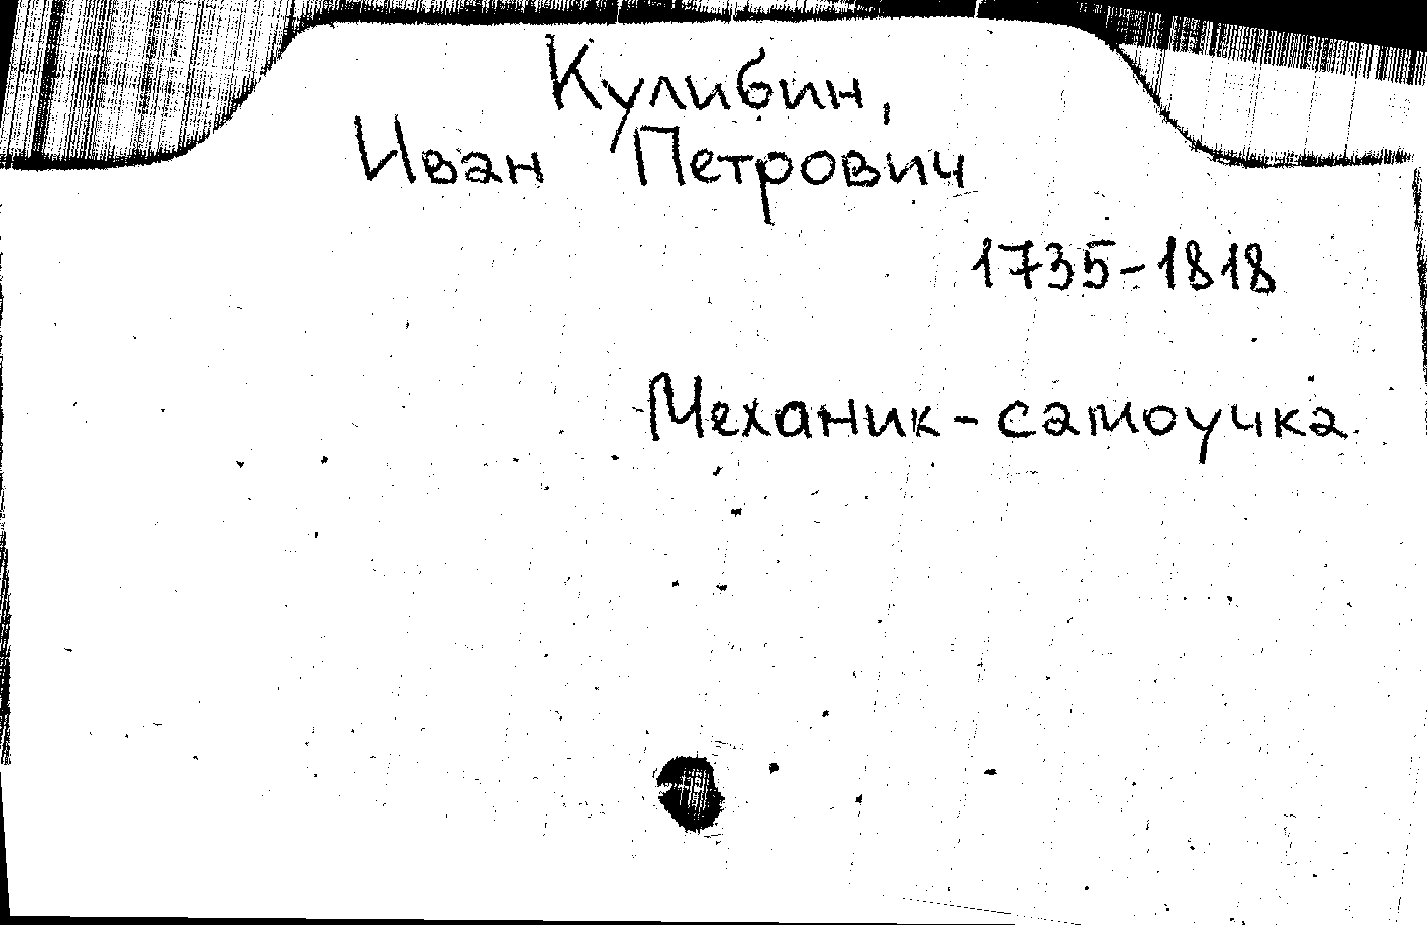 Кулибин,
Иван Петрович
1735-1818
Механик-самоучка